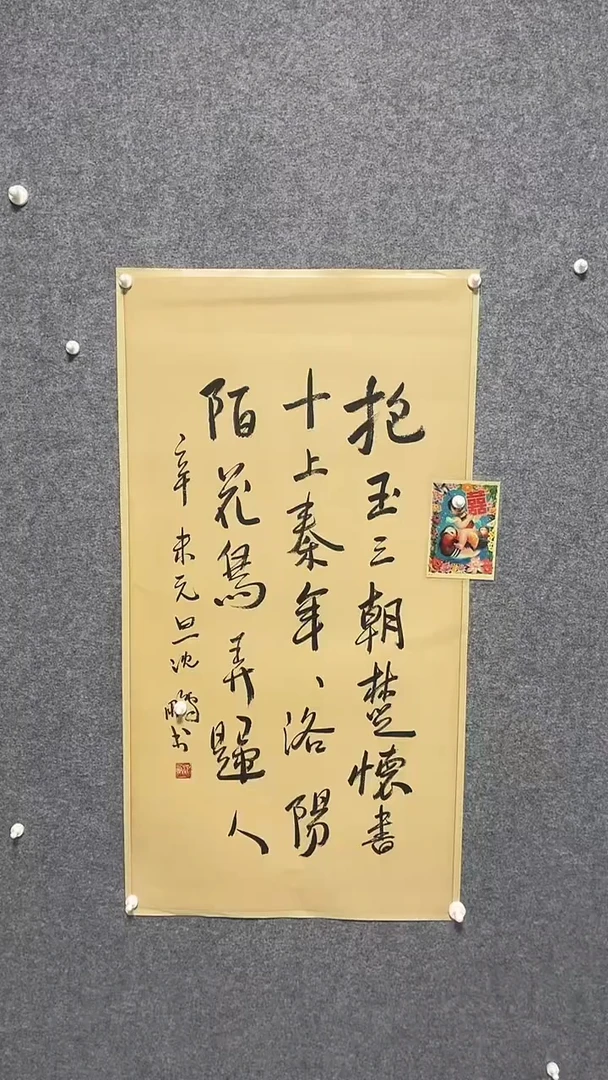 抱玉三朝楚懷書
十上秦年、洛陽
陌花鳥弄歸人
辛未元旦沈鵬书
囍